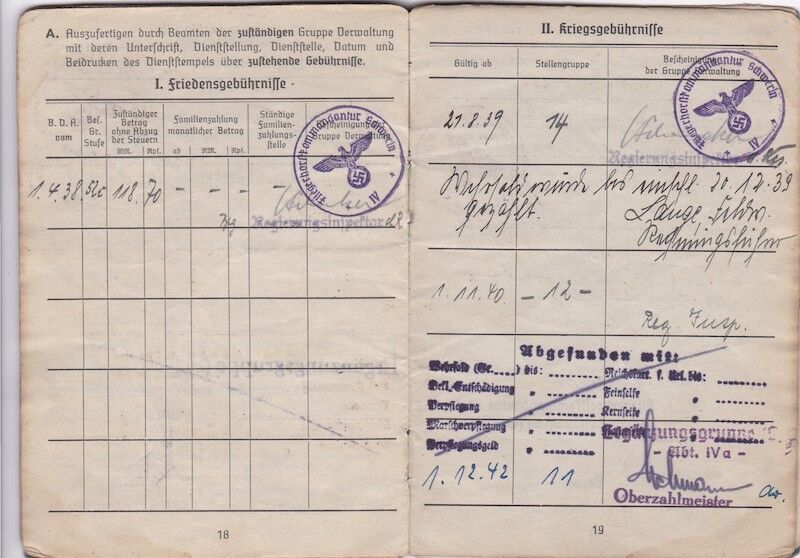 A. Auszufertigen durch Beamten der zuständigen Gruppe Verwaltung
mit deren Unterschrift, Dienststellung, Dienststelle, Datum und
Beidrucken des Dienststempels über zustehende Gebührnisse.
I. Friedensgebührnisse
B. D. A. vom
Bes. Gr. Stufe
Zuständiger Betrag ohne Abzug der Steuern
RM. Rpf.
Familienzahlung monatlicher Betrag
ab RM. Rpf.
Ständige Familienzahlungsstelle
Bescheinigung Gruppe Verwaltung
Fliegerhorstkommandantur Schwerin
IV
1.4.38. 118.70 - - - -
Regierungsinspektor
18
II. Kriegsgebührnisse
Gültig ab
Stellengruppe
Bescheinigung der Gruppe Verwaltung
Fliegerhorstkommandantur Schwerin
IV
21.8.39 14
Regierungsinspektor
Wehrsold wurde bis einschl. 20.12.39
gezahlt. Lange, Feldw.
Rechnungsführer
1.11.40 - 12 -
Reg. Insp.
Abgefunden mit:
Wehrsold (Gr. ) bis: Reichskart. f. Url. bis:
Bekl. Entschädigung " Feinseife "
Verpflegung " Kernseife "
Marschverpflegung "
Verpflegungsgeld "
- Abt. IVa -
1.12.42 11
Oberzahlmeister
19